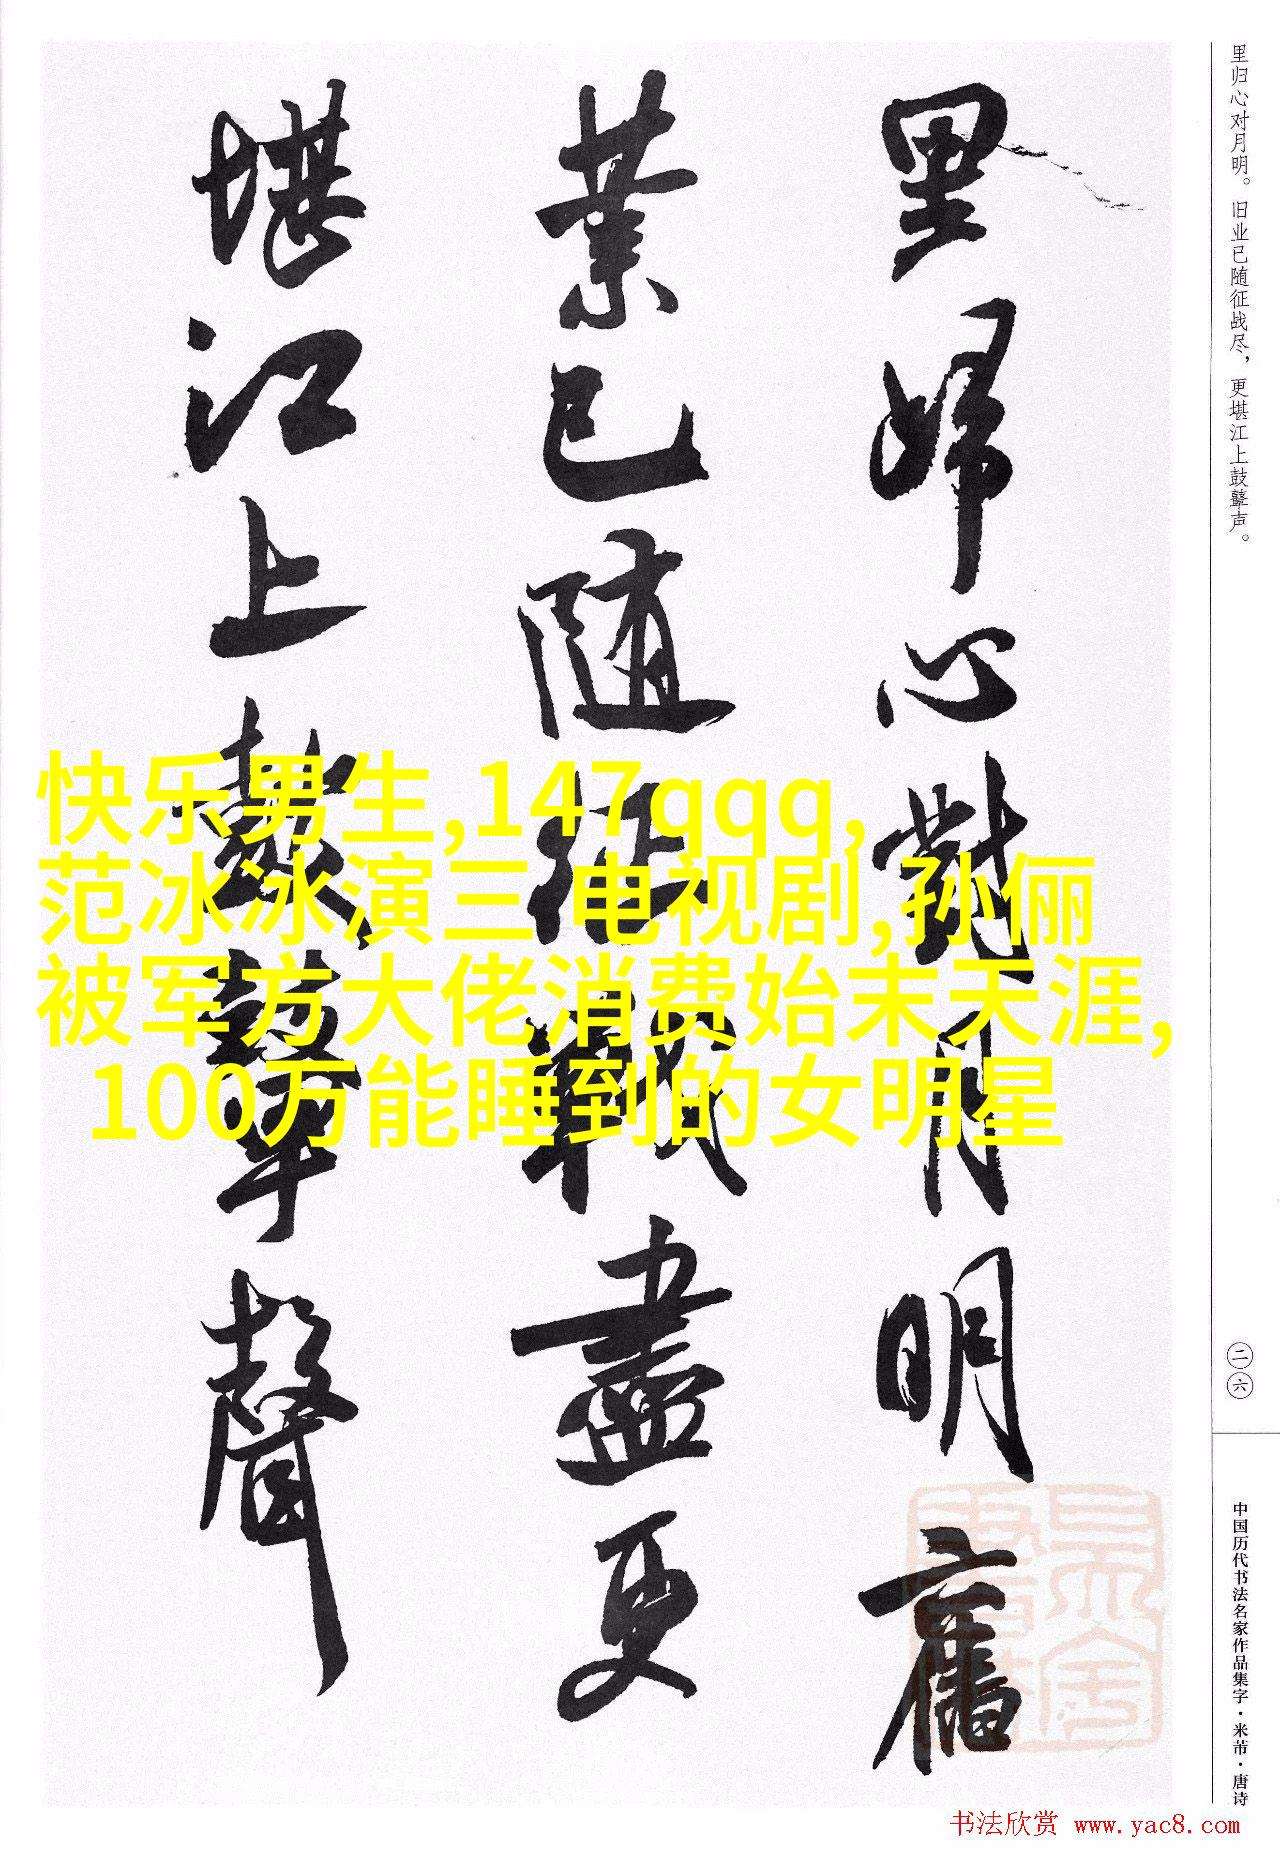 里归心对月明。旧业已随征战尽，更堪江上鼓鼙声。
二六
中国历代书法名家作品集字·米芾·唐诗
里歸心對月明舊
業已隨征戰盡更
堪江上鼓鼙聲
快乐男生,147qqq,
范冰冰演三 电视剧,孙俪
被军方大佬消费始末天涯,
100万能睡到的女明星
书法欣赏 www.yac8.com